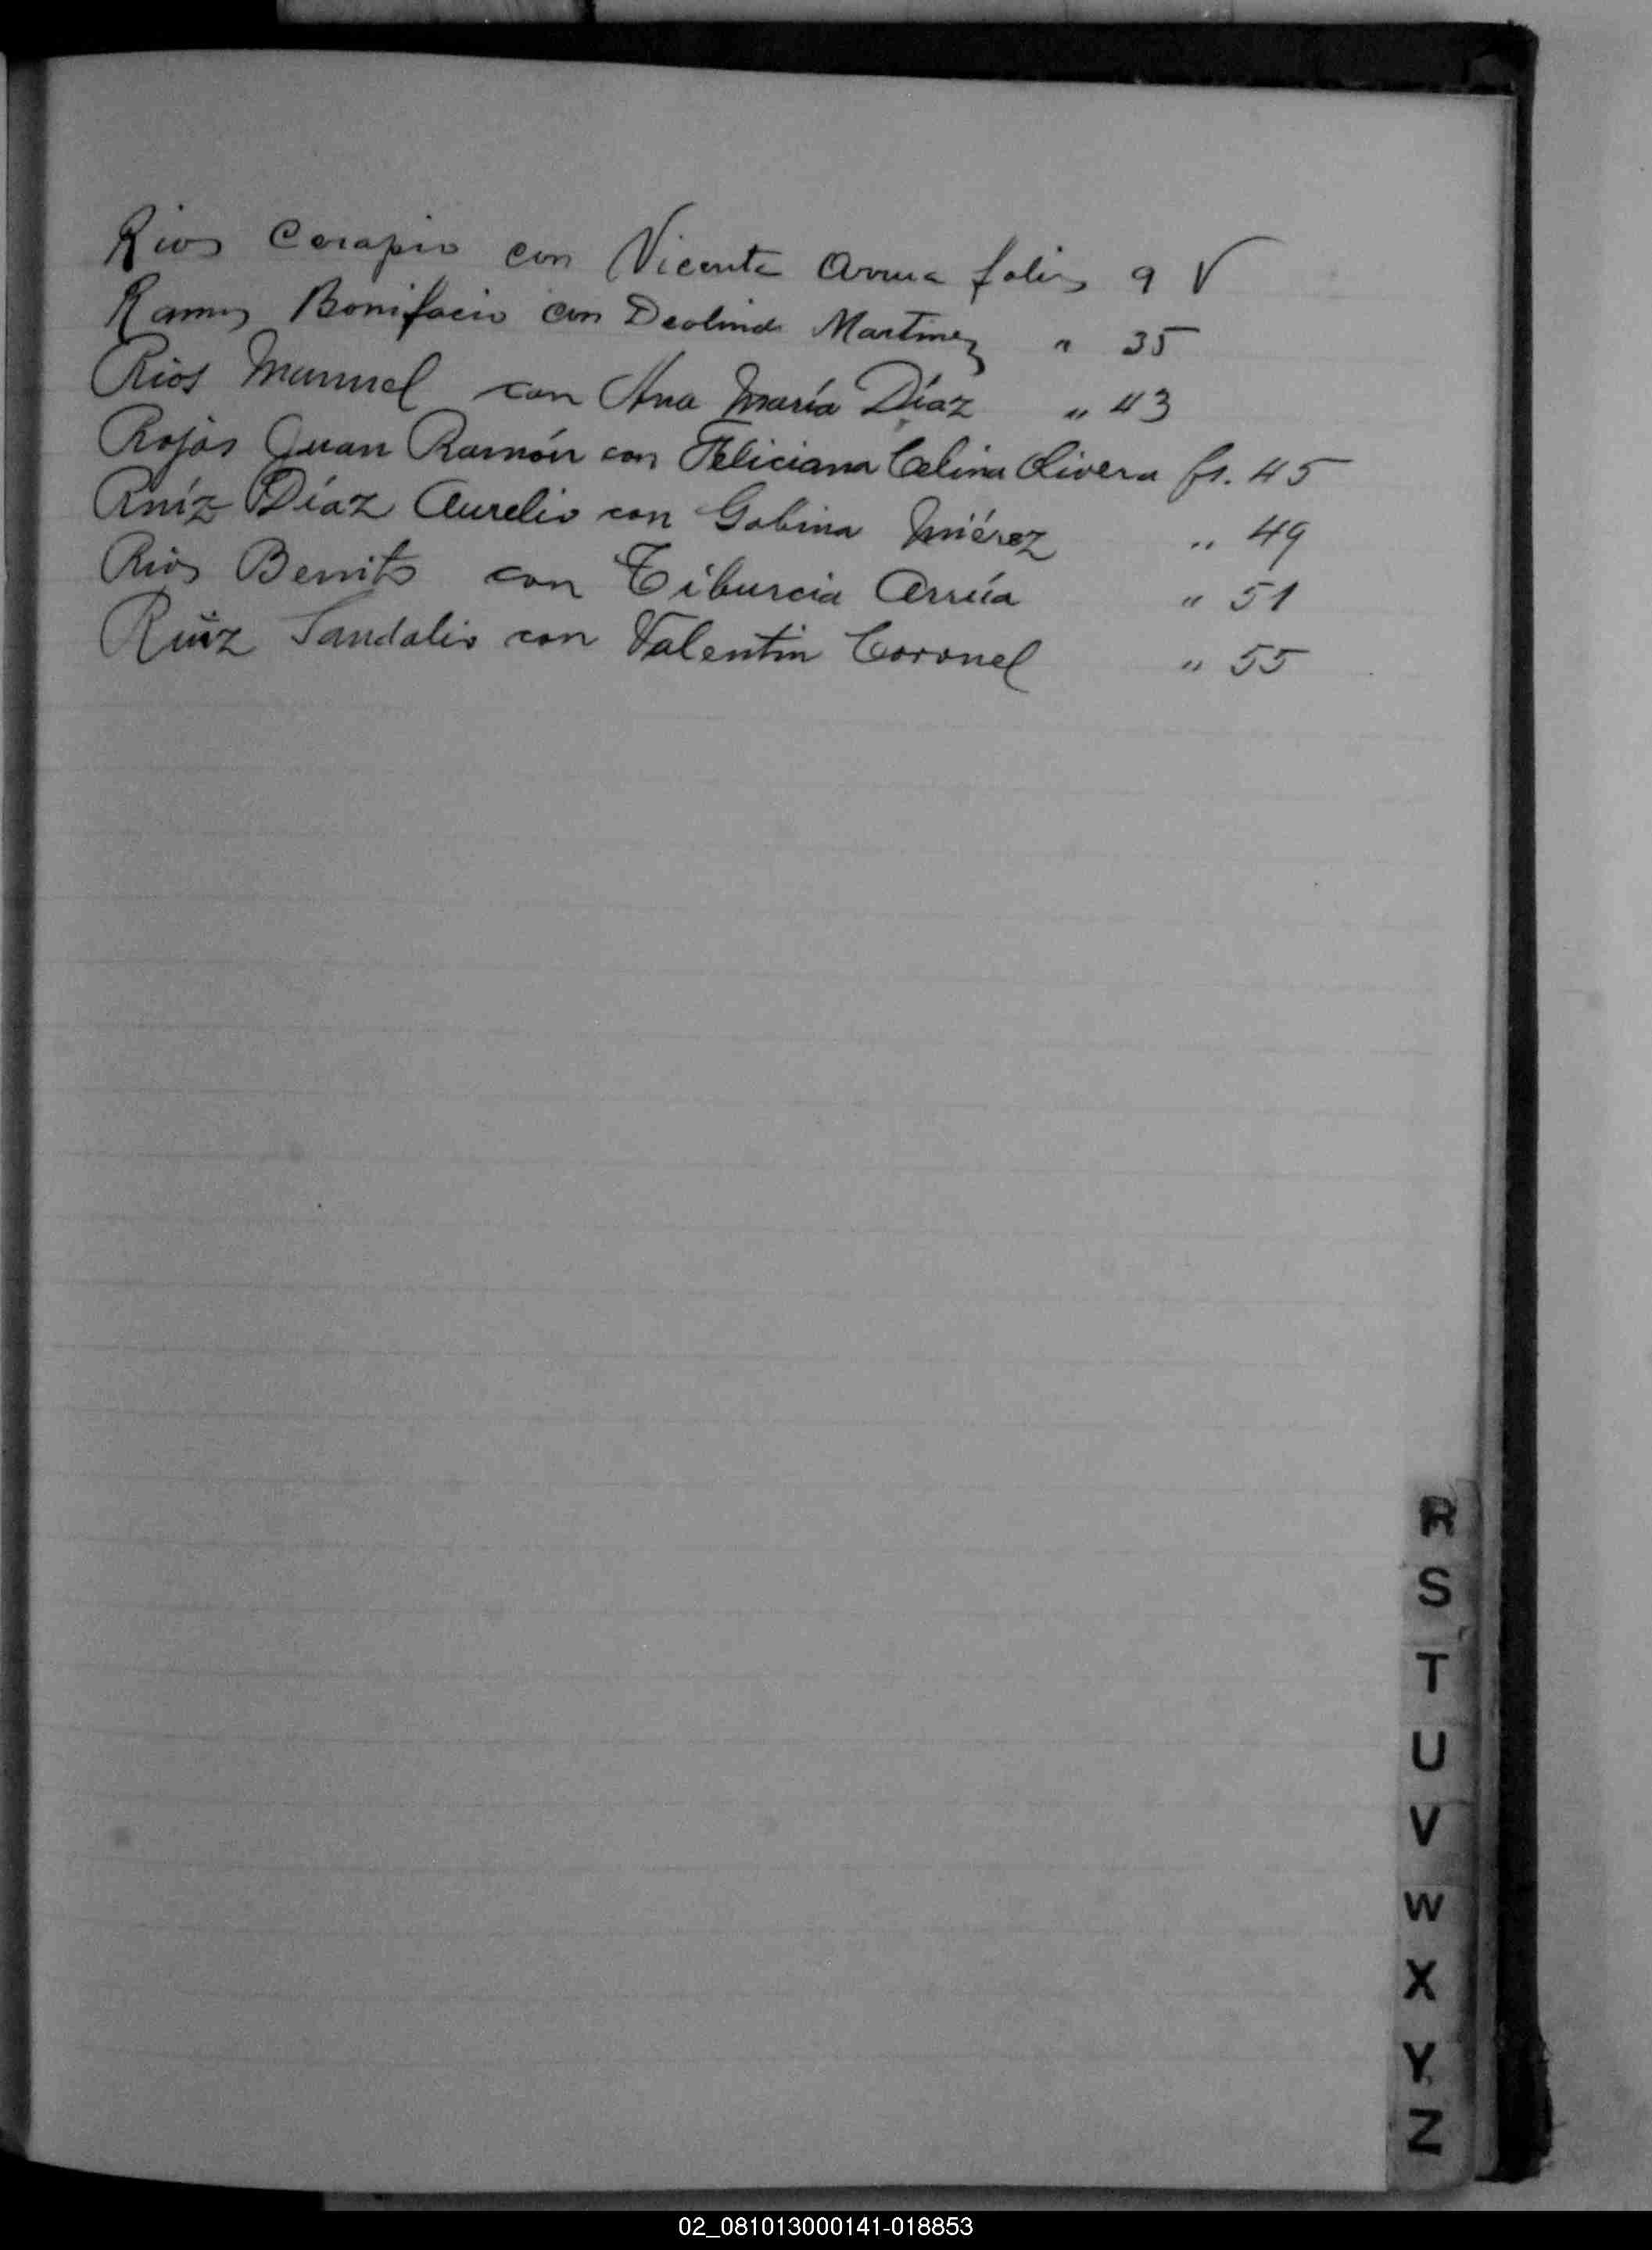 Rios Cerapio con Vicenta Arrua folios 9 V
Ramos Bonifacio con Deolinda Martinez " 35
Rios Manuel con Ana María Díaz " 43
Rojas Juan Ramón con Feliciana Celina Olivera fs. 45
Ruíz Díaz Aurelio con Gabina " 49
Rios Benito con Tiburcia Arrúa " 51
Ruiz Sandalio con Valentin Coronel " 55
R
S
T
U
V
W
X
Y
Z
02_081013000141-018853